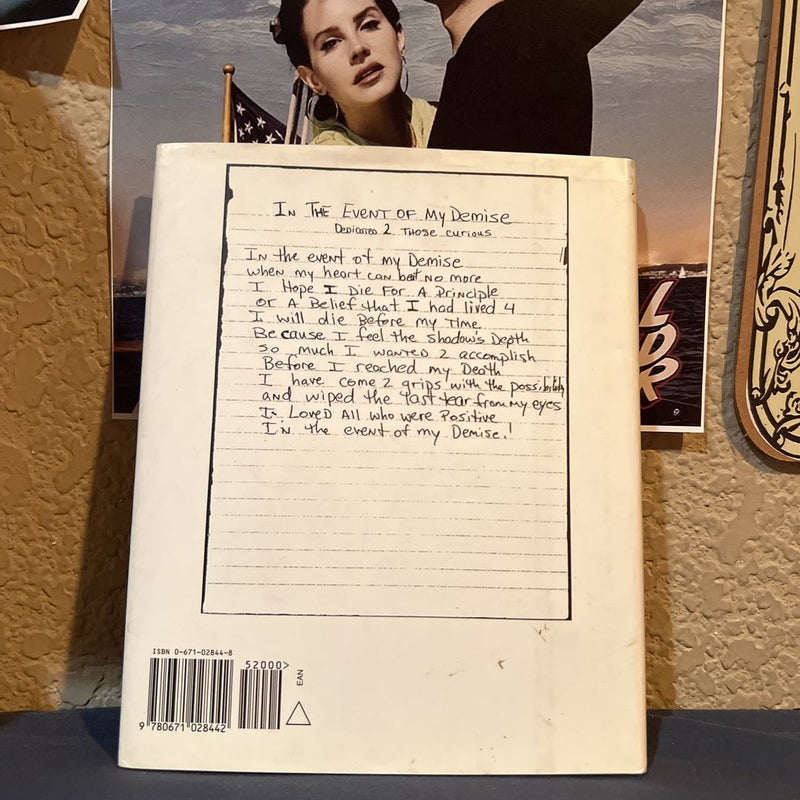 In The Event of My Demise
Dedicated 2 Those curious
In the event of my Demise
when my heart can beat no more
I Hope I Die For A Principle
or A Belief that I had lived 4
I will die Before my Time
Because I feel the shadow's Depth
so much I wanted 2 accomplish
Before I reached my Death
I have come 2 grips with the possibility
and wiped the last tear from my eyes
I Loved All who were Positive
In the event of my Demise!
ISBN 0-671-02844-8
52000>
EAN
9 780671 028442